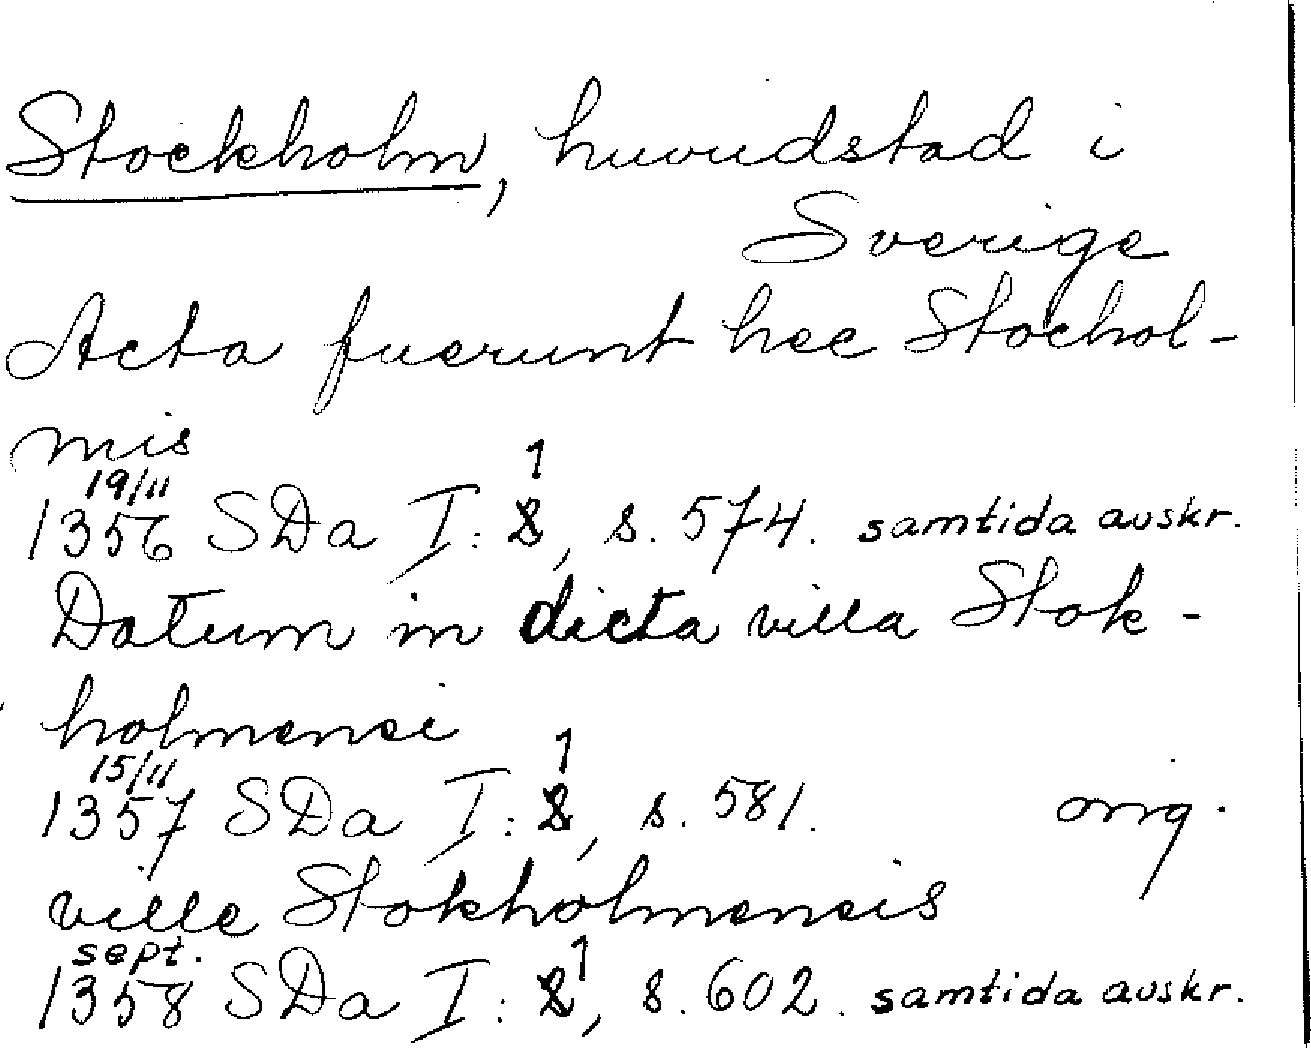 Stockholm, huvudstad i
Sverige
Acta fuerunt hec Stochol-
mis
19/11 1
1356 SDa I: 2, s. 574. samtida avskr.
Datum in dicta villa Stok-
holmensi
15/11 1
1357 SDa I: 2, s. 581. orig.
ville Stokholmensis
sept. 1
1358 SDa I: 2, s. 602. samtida avskr.